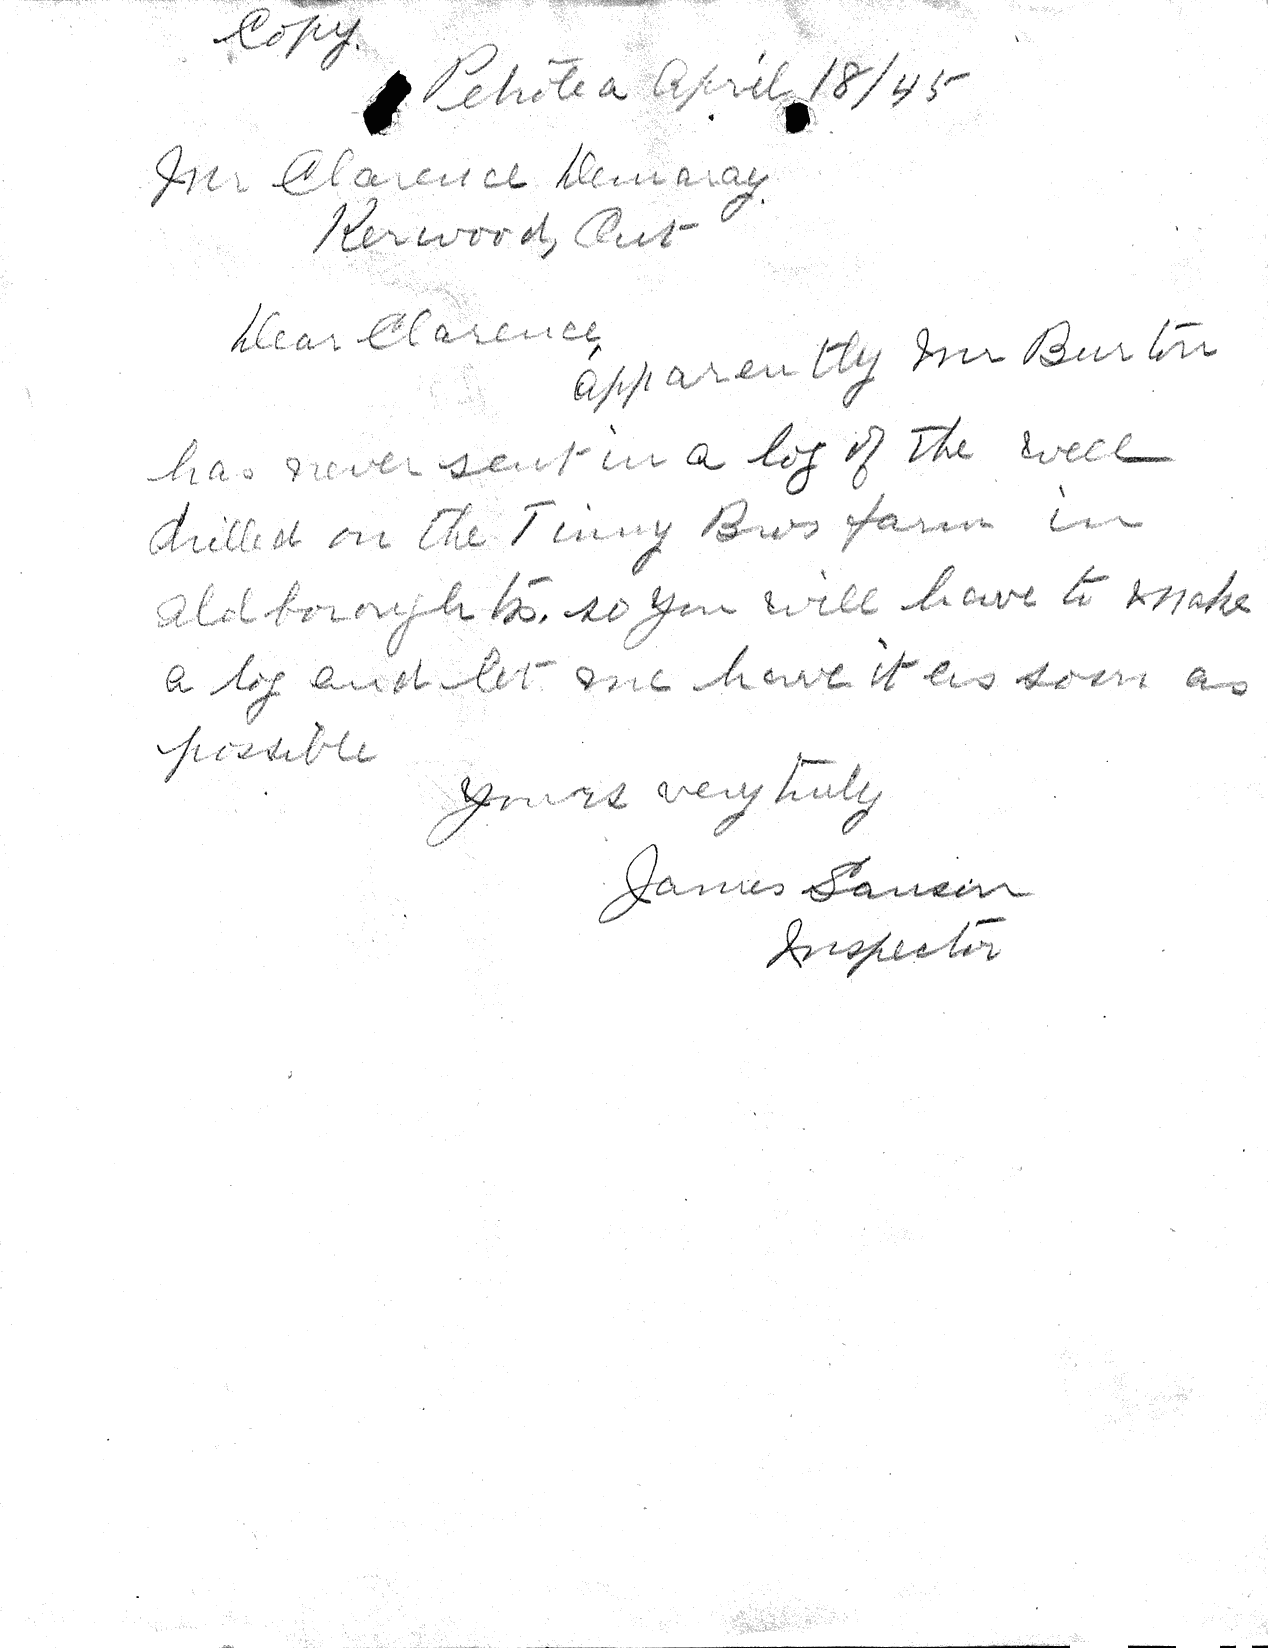 Copy.
Petrolea April 18/45
Mr Clarence Demaray.
Kerwood, Ont
Dear Clarence,
apparently Mr Burton
has never sent in a log of the well
drilled on the Tinny Bros farm in
Aldborough tp. so you will have to make
a log and let me have it as soon as
possible
Yours very truly
James
Inspector